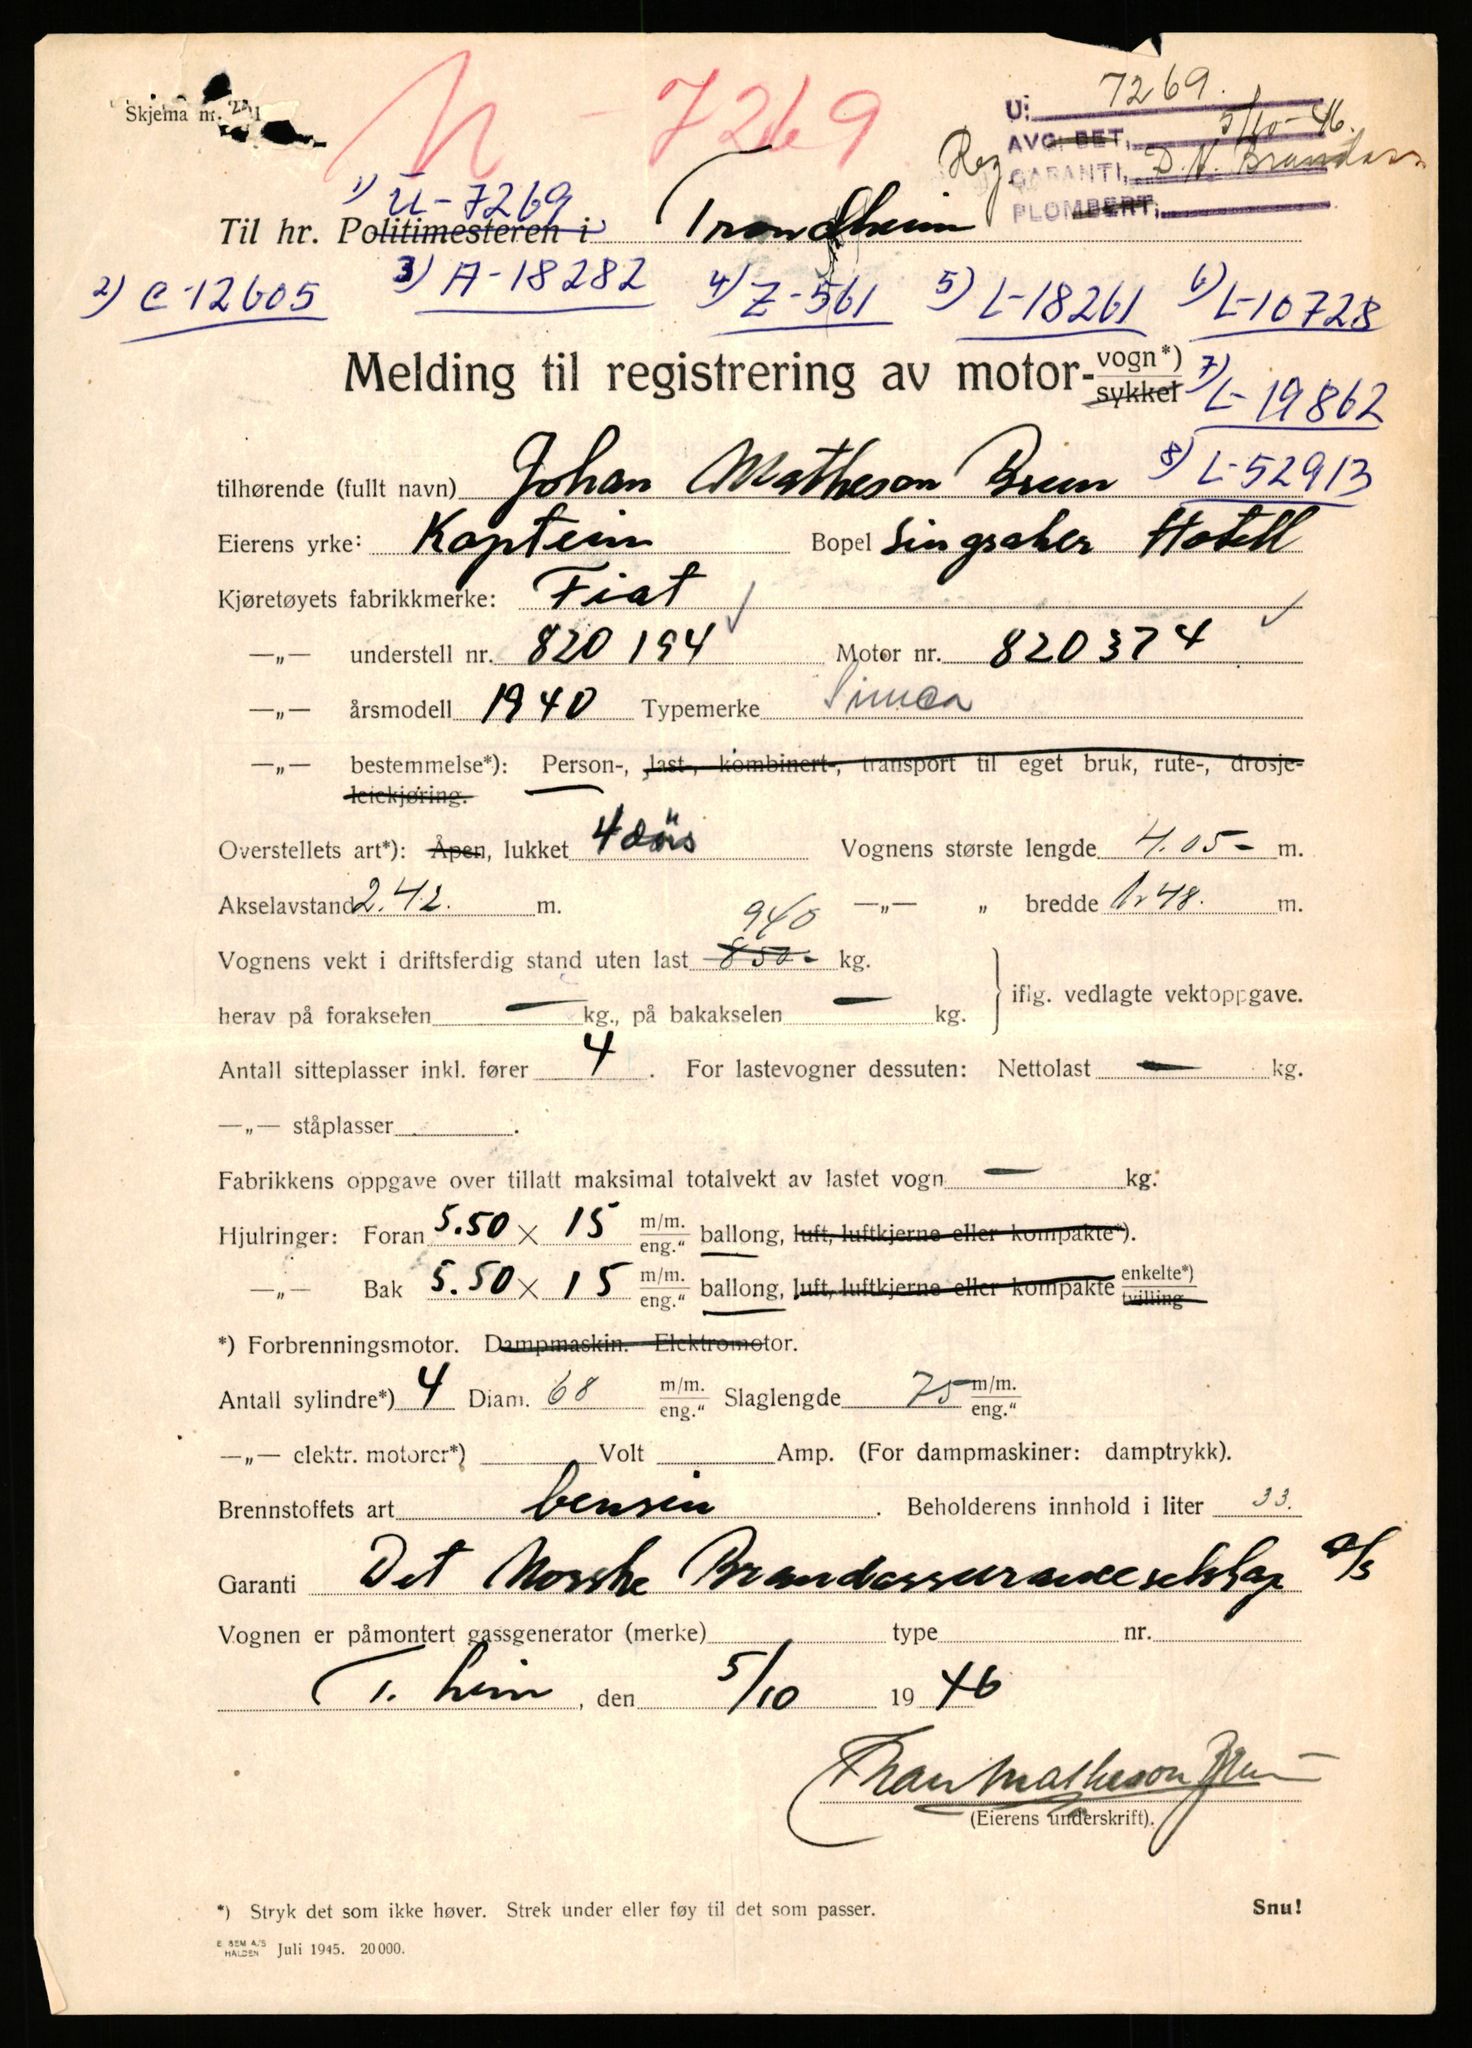 Skjema nr.
U - 7269
U: 7269.
AVG. BET, 5/10-46.
Reg GARANTI, D. N. Brandass
PLOMBERT,
1) U-7269
Til hr. Politimesteren i Trondheim
2) C-12605 3) A-18282 4) Z-561 5) L-18261 6) L-10728
Melding til registrering av motor-vogn*) sykkel
7) L-19862
8) L-52913
tilhørende (fullt navn) Johan Matheson Brun
Eierens yrke: Kaptein Bopel Singsaker Hotell
Kjøretøyets fabrikkmerke: Fiat
—„— understell nr. 820194 Motor nr. 820374
—„— årsmodell 1940 Typemerke Simca
—„— bestemmelse*): Person-, last-, kombinert-, transport til eget bruk, rute-, drosje-
leiekjøring.
Overstellets art*): Åpen, lukket 4 dörs Vognens største lengde 4.05- m.
Akselavstand 2.42. m. —„— „ bredde 1.48. m.
940
Vognens vekt i driftsferdig stand uten last 850- kg.
iflg. vedlagte vektoppgave.
herav på forakselen — kg., på bakakselen — kg.
Antall sitteplasser inkl. fører 4. For lastevogner dessuten: Nettolast — kg.
—„— ståplasser .
Fabrikkens oppgave over tillatt maksimal totalvekt av lastet vogn — kg.
Hjulringer: Foran 5.50 × 15 m/m. eng." ballong, luft, luftkjerne eller kompakte*).
—„— Bak 5.50 × 15 m/m. eng." ballong, luft, luftkjerne eller kompakte enkelte*) tvilling
*) Forbrenningsmotor. Dampmaskin. Elektromotor.
Antall sylindre*) 4 Diam. 68 m/m. eng." Slaglengde 75 m/m. eng."
—„— elektr. motorer*) Volt Amp. (For dampmaskiner: damptrykk).
Brennstoffets art bensin . Beholderens innhold i liter 33.
Garanti Det Norske Brandassuranceselskap a/s
Vognen er påmontert gassgenerator (merke) type nr.
T.heim, den 5/10 1946
Johan Matheson Brun
(Eierens underskrift).
*) Stryk det som ikke høver. Strek under eller føy til det som passer.
Snu!
E. SEM A/S
HALDEN Juli 1945. 20 000.